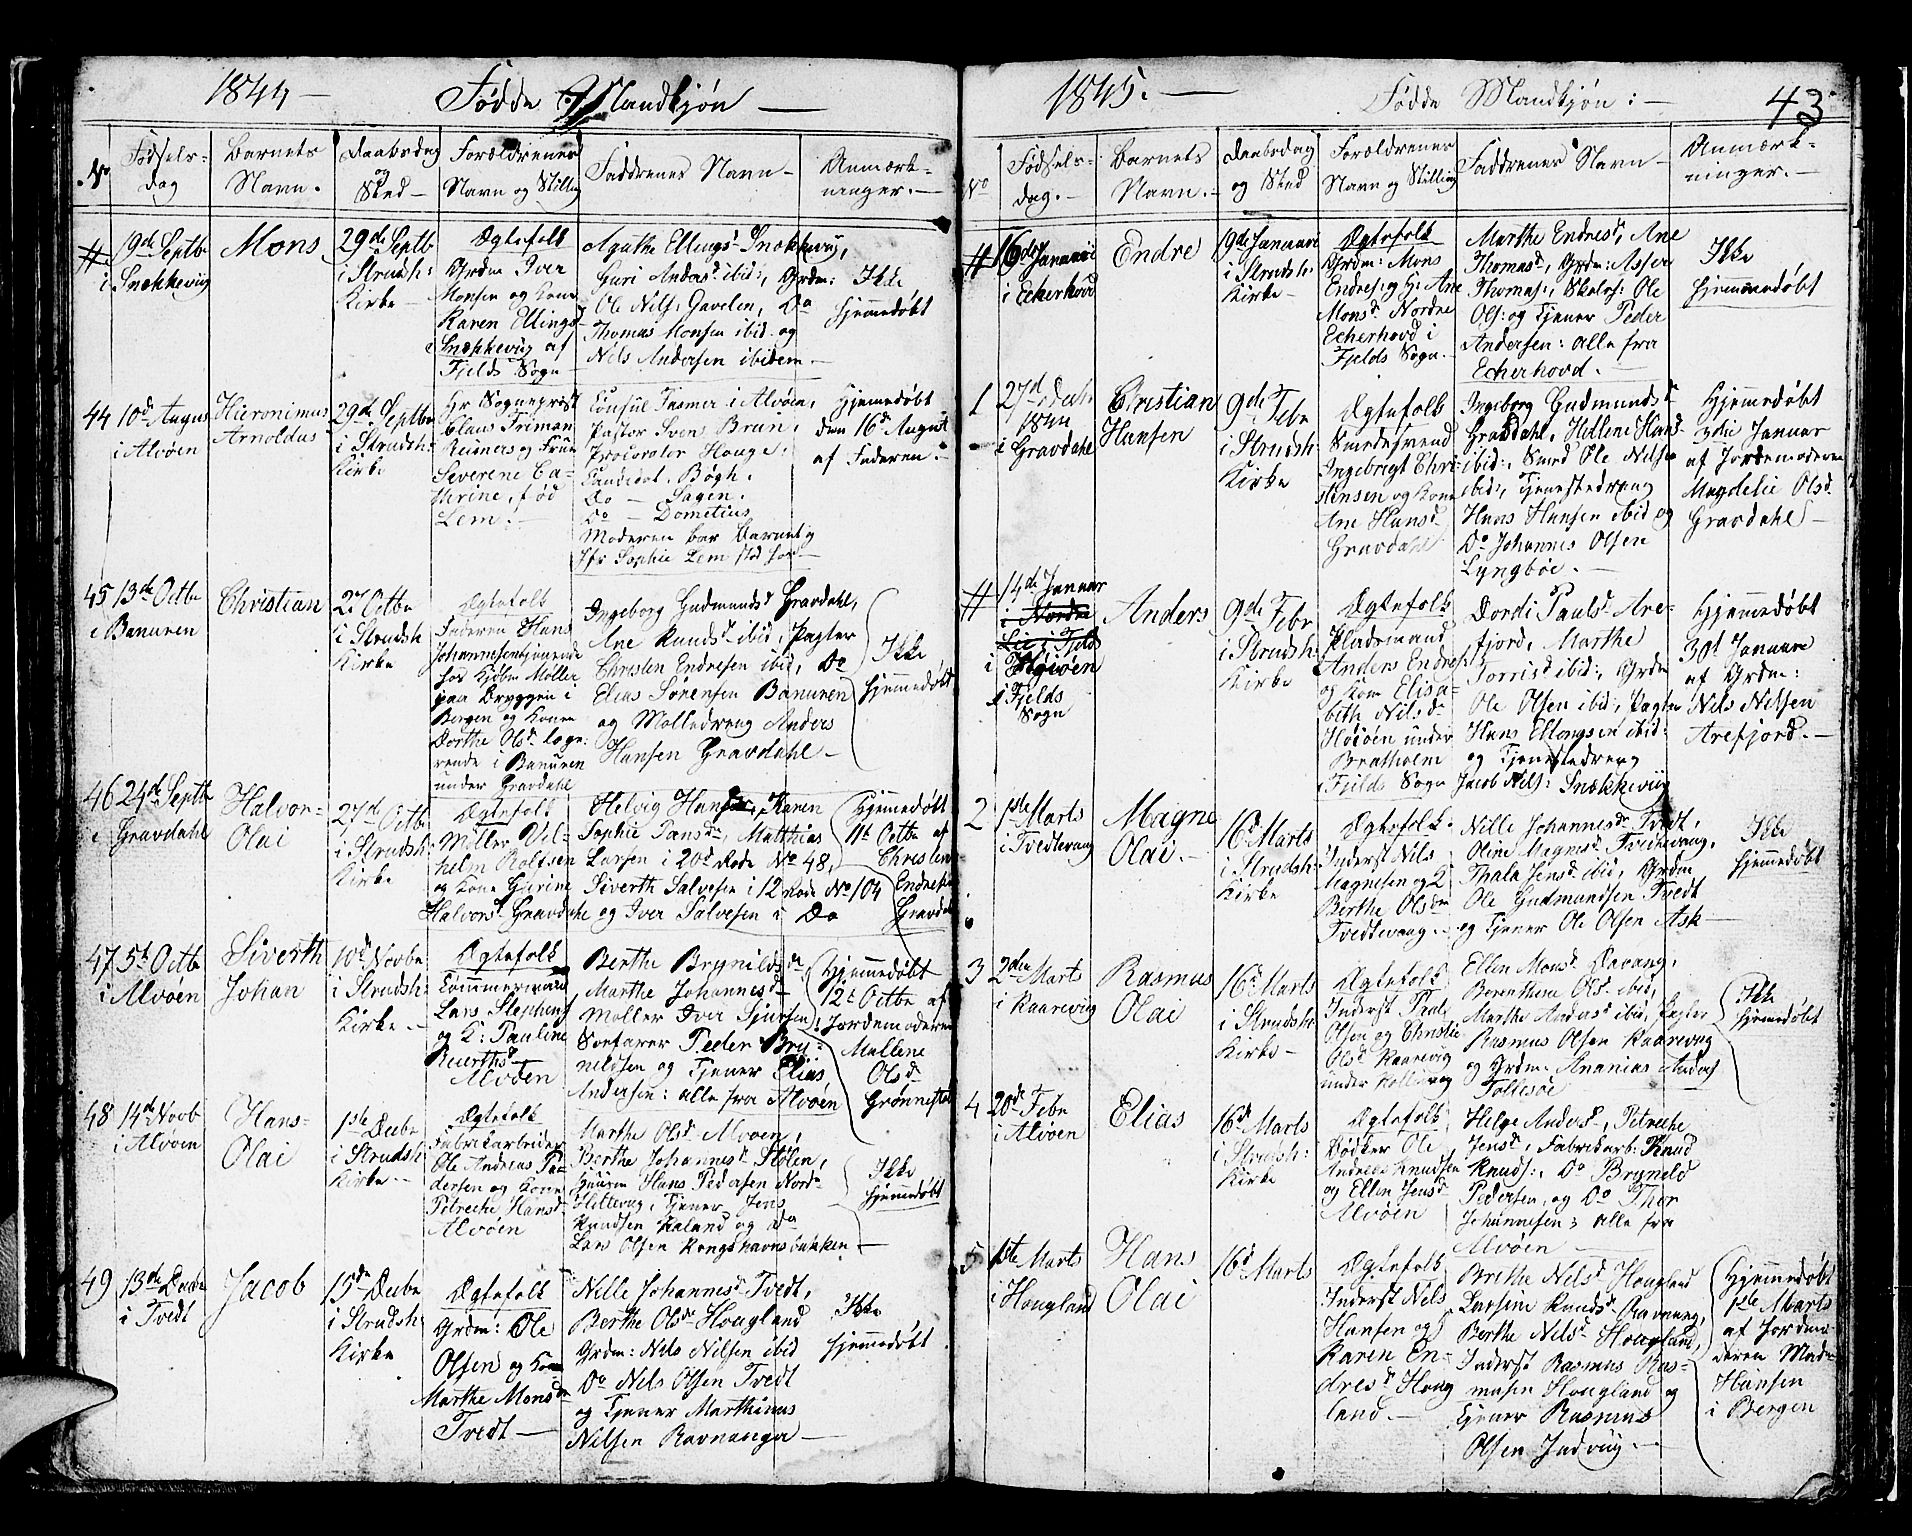 1844 —
Födde Mandkjön —
No
Födsels-
dag
Barnets
Navn.
Daabsdag
og
Sted —
Forældrenes
Navn og Stilling
Faddrenes Navn —
Anmærk-
ninger. —
#
19de Septbr
i Snekkevig
Mons
29de Septb
i Strudsh:
Kirke —
Ægtefolk
Grdm Iver
Monsen og Kone
Karen Ellingsd
Snekkevig af
Fjelds Sogn
Agathe Ellingsd Snekkevig,
Guri Andersd ibid:, Grdm:
Ole Nils: Gavelen, Do
Thomas Monsen ibid: og
Nils Andersen ibidem —
Ikke
hjemmedöbt
44
10d August
i Alvöen
Hieronimus
Arnoldus
29de Septbr
i Strudsh:
Kirke
Hr Sognepræst
Claus Friman
Reimers og Frue
Severene Ca-
thrine, föd
Lem. —
Consul Fasmer i Alvöen,
Pastor Svens Brun,
Procurator Houge,
Candidat Bögh.
Do — Sagen.
Do — Dometius,
Moderen bar Barnet og
Jfr Sophie Lem stod hos —
Hjemmedöbt
den 16d August
af Faderen. —
45
13de Octbr
i Banuren
Christian
27 Octbr
i Strudsh
Kirke
Ægtefolk
Faderen Hans
Johannesen tjenende
hos Kjöbm Möller
paa Bryggen i
Bergen og Konen
Dorthe Olsd loge-
rende i Banuren
under Gravdahl
Ingeborg Gudmundsd Gravdahl,
Ane Knudsd ibid, Pagter
Christen Endresen ibid, Do
Elias Sörensen Banuren
og Mölledreng Anders
Hansen Gravdahl —
Ikke
hjemmedöbt
46
24de Septbr
i Gravdahl
Halvor
Olai
27d Octbr
i Strudsh:
Kirke
Ægtefolk
Möller Vil-
helm Rolfsen
og Kone Gurine
Halvorsd Gravdahl
Helvig Hansd, Karen
Sophie Jansdr, Matthias
Larsen i 20d Rode No 48,
Siverth Salvesen i 12 Rode No 104
og Iver Salvesen i Do
Hjemmedöbt
11t Octbr af
Christen
Endresen
Gravdal
47
5t Octbr
i Alvöen
Siverth
Johan
10d Novbr
i Strudsh:
Kirke —
Ægtefolk
Tömmermand
Lars Stephens
og K: Pauline
Siverthsd
Alvöen
Berthe Brynildsdr
Marthe Johannesd
Möller Iver Sjursen,
Söefarer Peder Bry-
nildsen og Tjener Elias
Andersen: alle fra Alvöen
Hjemmedöbt
12t Octbr af
Jordemoderen
Mallene
Olsd
Grönnestøl
48
14de Novb
i Alvöen
Hans
Olai
1ste Decbr
i Strudsh:
Kirke —
Ægtefolk
Fabrikarbeider
Ole Andreas Pe-
dersen og Kone
Petreche Hansd
Alvöen
Marthe Olsd Alvöen,
Berthe Johannesd Stölen,
Hans Pedersen Nord-
Tjener Jens
Knudsen Kaland og Do
Lars Olsen Kongshavnsbakken —
Ikke
hjemmedöbt
49
13de Decbr
i Tvedt
Jacob
15de Decbr
i Strudsh
Kirke
Ægtefolk
Grdm: Ole
Olsen og Kone
Marthe Monsdr
Tvedt —
Nille Johannesd Tvedt,
Berthe Olsd Hougland
Grdm: Nils Nilsen ibid
Do Nils Olsen Tvedt
og Tjener Marthinus
Nilsen Ravnanger —
Ikke
hjemmedöbt
1845. —
Födde Mandkjön: —
43
No
Födsels-
dag. —
Barnets
Navn. —
Daabsdag
og Sted
Forældrenes
Navn og Stilling
Faddrenes Navn —
Anmærk-
ninger. —
#
16de Januari
i Eckerhovd
Endre
19de Januari
i Strudsh:
Kirke —
Ægtefolk
Grdm: Mons
Endres: og H: Ane
Monsd Nordre
Eckerhovd i
Fjelds Sogn. —
Marthe Endresd, Ane
Thomasd, Grdm: Asser
Thomas:, Skolel: Ole
Ols: og Tjener Peder
Andersen: alle fra
Eckerhovd. —
Ikke
hjemmedöbt
1
27d Decbr
1844
i Gravdahl
Christian
Hansen
9de Febr
i Strudsh:
Kirke
Ægtefolk
Smedesvend
Ingebrigt Chri-
stensen og Kone
Ane Hansd
Gravdahl
Ingeborg Gudmundsd
Gravdahl, Hellene Hansd
ibid:, Smed Ole Nilsen
ibid:, Tjenestedreng
Hans Hansen ibid og
Do Johannes Olsen
Lyngböe. —
Hjemmedöbt
3die Januar
af Jordemoderen
Magdeli Olsd
Gravdahl —
#
14de Januar
i Nordre
Lie i Fjelds
i
i Fjelds
Sogn
Anders
9de Febr
i Strudsh:
Kirke
Ægtefolk
Pladsmand
Anders Endres:
og Kone Elisa-
beth Nilsdr
under
Bratholm
Fjelds Sogn
Dordi Paulsd Are-
fjord, Marthe
Torrisd ibid:, Grdm
Ole Olsen ibid:, Pagter
Hans Ellingsen ibid:
og Tjenestedreng
Jacob Nils: Snekkevig
Hjemmedöbt
30t Januar
af Grdm:
Nils Nilsen
Arefjord. —
2
1ste Marts
i Tvedtevang
Magne
Olai. —
16d Marts
i Strudsh:
Kirke
Ægtefolk.
Inderst Nils
Magnesen og K
Berthe Olsdr
Tvedtevang. —
Nille Johannesdr Tvedt,
Oline Magnesd Tvedtevang,
Thala Jensd ibid, Grdm
Ole Gudmundsen Tvedt
og Tjener Ole Olsen Ask —
Ikke
hjemmedöbt
3
2den Marts
i Kaarevig
Rasmus
Olai
16d Marts
i Strudsh:
Kirke —
Ægtefolk
Inderst
Olsen og Christie
Olsd Kaarevig
under
Ellen Monsd Davang,
Berenthine Olsd ibid,
Marthe Andersd ibid, Pagter
Rasmus Olsen Kaarevig
og Grdm: Ananias Anders
Follesöe
Ikke
hjemmedöbt
4
20de Febr
i Alvöen
Elias
16d Marts
i Strudsh:
Kirke
Ægtefolk
Bödker Ole
Andreas Knudsen
og Ellen Jensd
Alvöen
Helge Andersd, Petreche
Jensd, Fabrikarb: Knud
Knuds:, Do Bryneld
Pedersen og Do Thor
Johannesen; alle fra
Alvöen —
5
1ste Marts
i Hougland
Hans
Olai
16d Marts
Ægtefolk
Inderst Nels
Hansen og
Karen En-
dresd Houg
land. —
Brethe Nilsd Hougland
Larsine Knudsd Davang,
Berthe Nilsd Hougland,
Inderst Rasmus Ras-
musen Hougland og
Tjener Rasmus
Olsen Indvig. —
Hjemmedöbt
1ste Marts
af Jordmo-
deren Made
Hansen
i Bergen